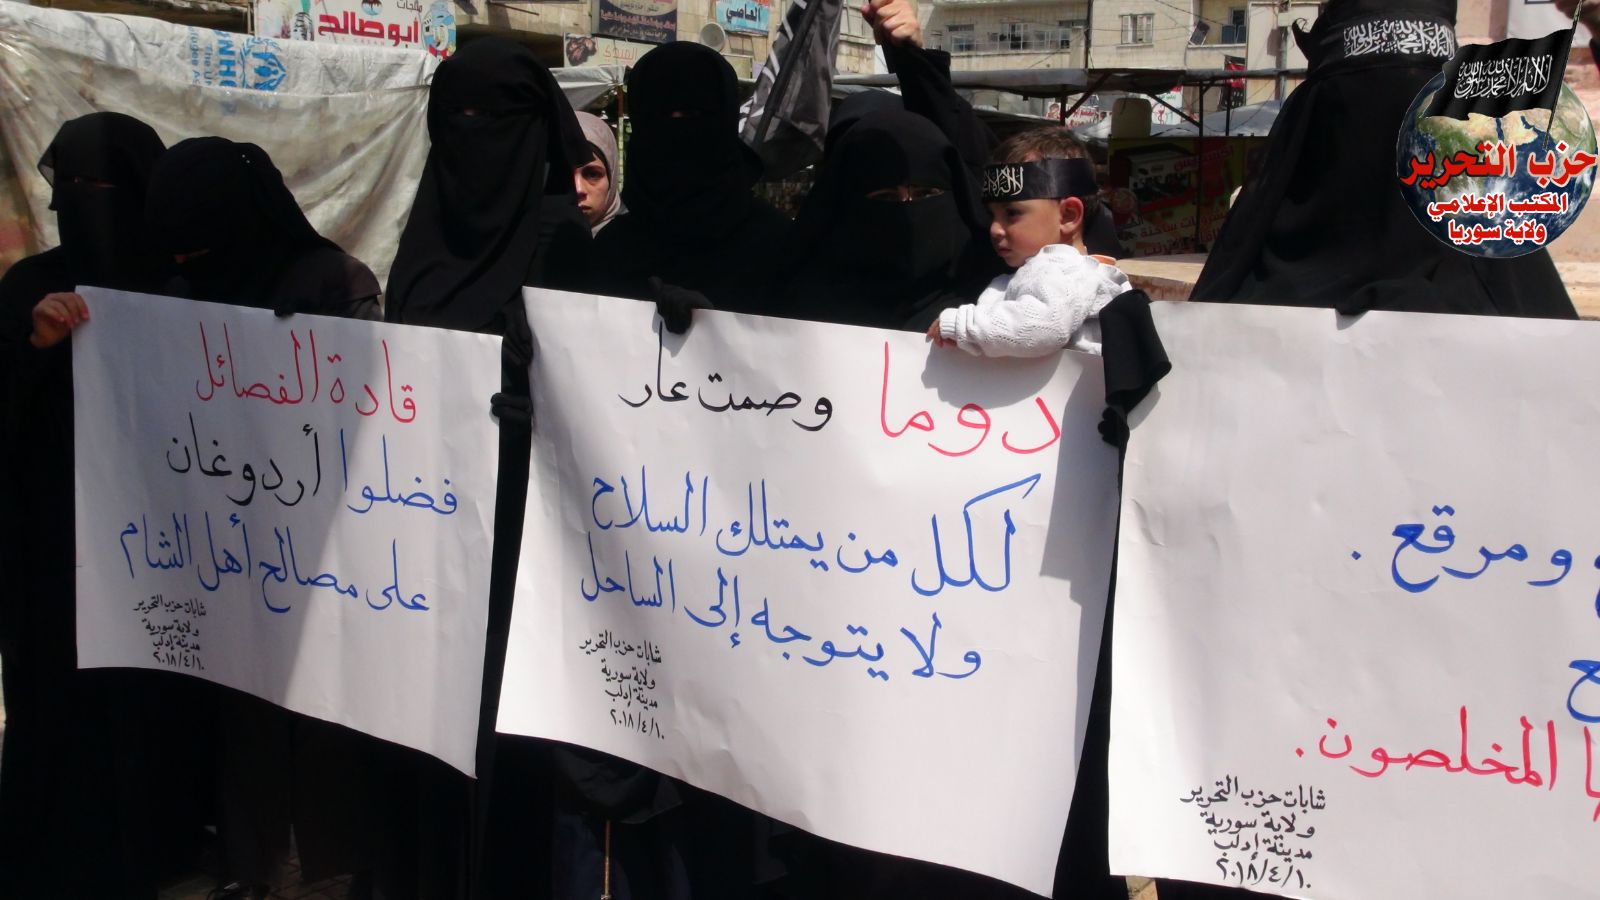 منتجات
أبو صالح
UNHCR
The UN
العاصي
لا إله إلا الله محمد رسول الله
حزب التحرير
المكتب الإعلامي
ولاية سوريا
دوما وصمت عار
لكل من يمتلك السلاح
ولا يتوجه إلى الساحل
شابات حزب التحرير
ولاية سورية
مدينة إدلب
٢٠١٨/٤/١٠
قادة الفصائل
فضلوا أردوغان
على مصالح أهل الشام
شابات حزب التحرير
ولاية سورية
مدينة إدلب
٢٠١٨/٤/١٠
ومرقع .
المخلصون .
شابات حزب التحرير
ولاية سورية
مدينة إدلب
٢٠١٨/٤/١٠